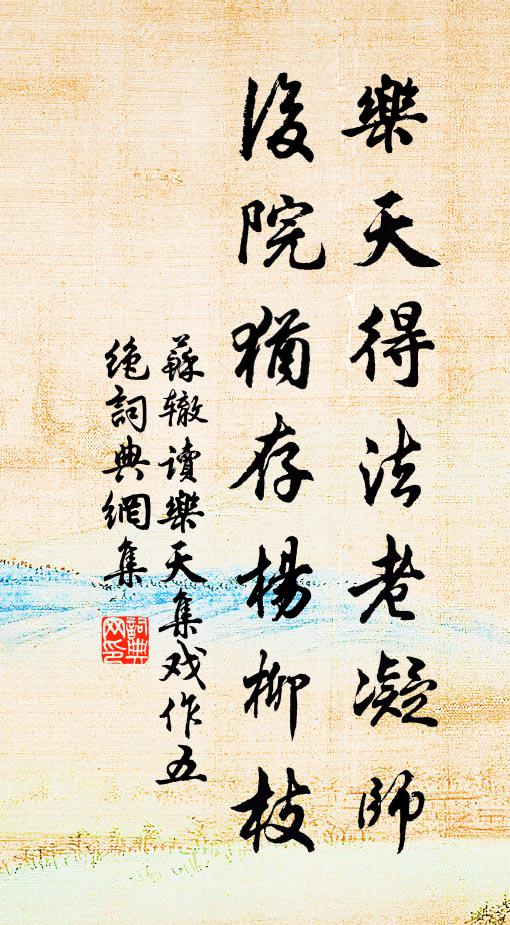 樂天得法老凝師
後院猶存楊柳枝
蘇辙讀樂天集戏作五
絶詞典網集
詞典
网印